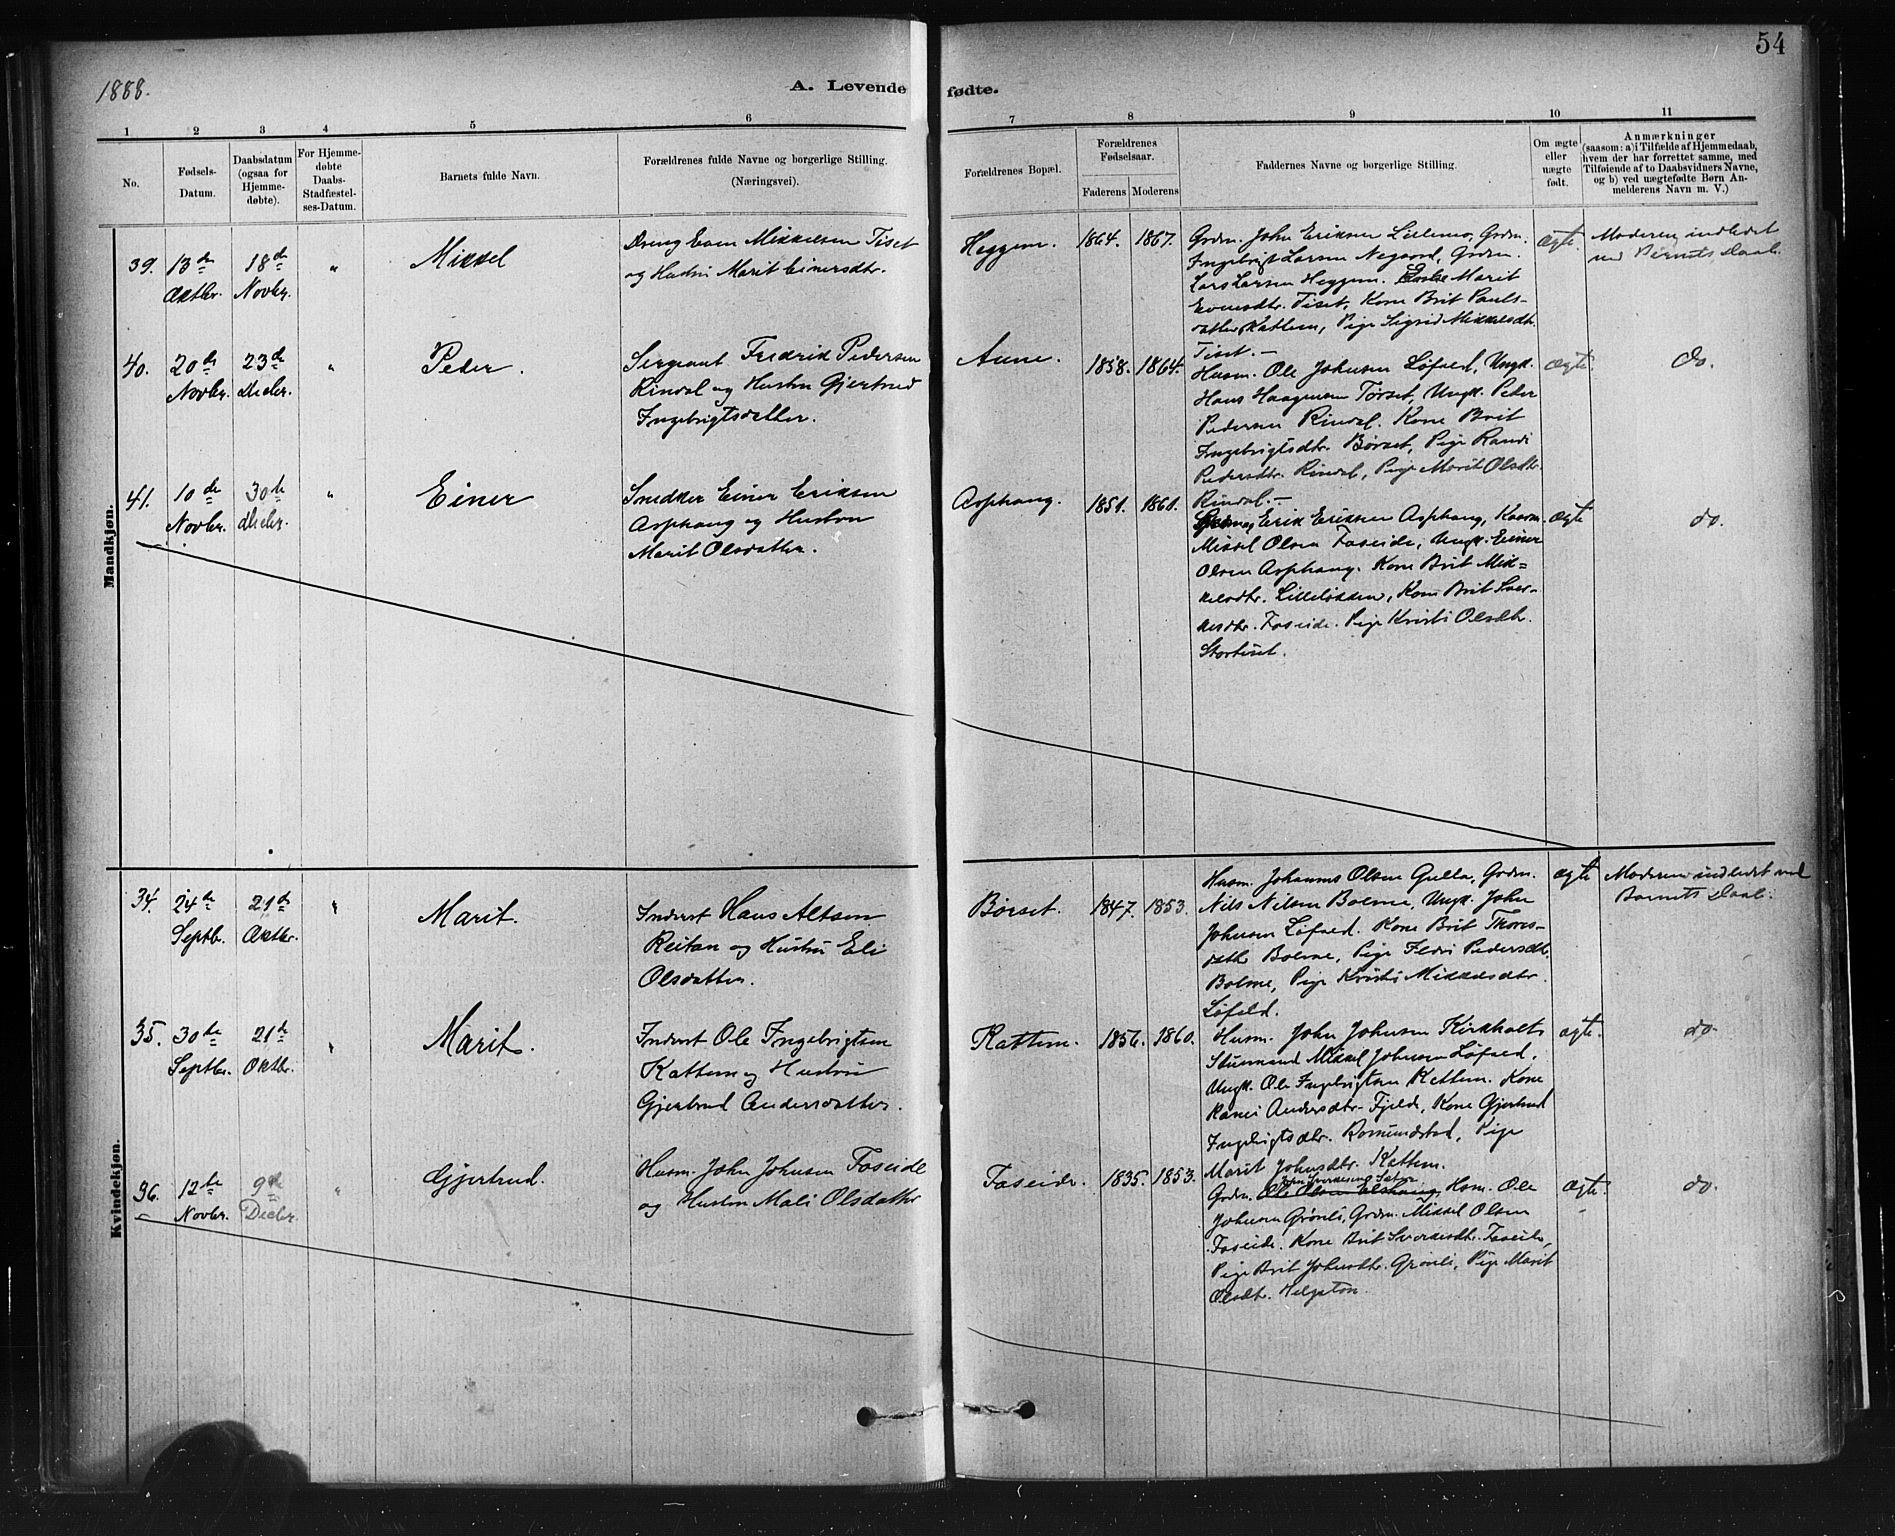 54
1888.
A. Levende fødte.
1 2 3 4 5 6 7 8 9 10 11
No.
Fødsels-
Datum.
Daabsdatum
(ogsaa for
Hjemme-
døbte).
For Hjemme-
døbte
Daabs-
Stadfæstel-
ses-Datum.
Barnets fulde Navn.
Forældrenes fulde Navne og borgerlige Stilling.
(Næringsvei).
Forældrenes Bopæl.
Forældrenes
Fødselsaar.
Faderens Moderens
Faddernes Navne og borgerlige Stilling.
Om ægte
eller
uægte
født.
Anmærkninger
(saasom: a) i Tilfælde af Hjemmedaab,
hvem der har forrettet samme, med
Tilføiende af to Daabsvidners Navne,
og b) ved uægtefødte Børn An-
melderens Navn m. V.)
Mandkjøn.
39.
13de
Oktbr.
18de
Novbr.
"
Mikkel
Dreng Even Mikkelsen Tiset
og Hustru Marit Einersdtr.
Heggem.
1864. 1867.
Grdm. John Eriksen Lillemo, Grdm.
Ingebrigt Larsen Negaard, Grdm.
Lars Larsen Heggem. Marit
Evensdtr. Tiset, Kone Brit Pauls-
datter Kattem, Pige Sigrid Mikkelsdtr.
Tiset.-
ægte.
Moderen indledet
ved Barnets Daab.
40.
20de
Novbr.
23de
Decbr.
"
Peder.
Sergeant Fredrik Pedersen
Rindal og Hustru Gjertrud
Ingebrigtsdatter.
Aune.
1858. 1864.
Husm. Ole Johnsen Løfald, Ungk.
Hans Haagensen Tørset, Ungk. Peder
Pedersen Rindal. Kone Brit
Ingebrigtsdtr. Børset, Pige Randi
Pedersdtr. Rindal, Pige Marit Olsdtr.
Rindal.-
ægte.
do.
41.
10de
Novbr.
30te
Decbr.
"
Einer
Snedker Einer Eriksen
Asphaug og Hustru
Marit Olsdatter.
Asphaug.
1851. 1861.
Erik Eriksen Asphaug, Kaarm.
Mikkel Olsen Faseide, Ungk. Einer
Olsen Asphaug. Kone Brit Mik=
kelsdtr. Lilleløkken, Kone Brit Sver-
kesdtr. Faseide. Pige Kristi Olsdtr.
Stortiset.
ægte
do.
Kvindekjøn.
34.
24de
Septb.
21de
Oktbr.
"
Marit.
Inderst Hans Altsen
Reitan og Hustru Eli
Olsdatter.
Børset.
1847. 1853.
Husm. Johannes Olsen Gulla, Grdm.
Nils Nilsen Bolme, Ungk. John
Johnsen Løfald. Kone Brit Thores-
datter Bolme, Pige Pedersdtr.
Bolme, Pige Kristi Mikkelsdtr.
Løfald.
ægte
Moderen indledet ved
Barnets Daab.
35.
30te
Septbr.
21de
Oktbr.
"
Marit.
Inderst Ole Ingebrigtsen
Kattem og Hustru
Gjertrud Andersdatter.
Kattem.
1856. 1860.
Husm. John Johnsen Kirkholt,
Stuemand Mikkel Johnsen Løfald,
Ungk. Ole Ingebrigtsen Kattem. Kone
Andersdtr. Fjelde, Kone Gjertrud
Ingebrigtsdtr. Romundstad, Pige
Marit Johnsdtr. Kattem.
ægte.
do.
36.
12te
Novbr.
9de
Decbr.
"
Gjertrud.
Husm. John Johnsen Faseide
og Hustru Mali Olsdatter
Faseide.
1835. 1853.
John Sverkesens
Grdm. Ole Olsen Elshaug, Husm. Ole
Johnsen Grønli, Grdm. Mikkel Olsen
Faseide. Kone Brit Sverkesdtr. Faseide,
Pige Brit Johnsdtr. Grønli, Pige Marit
Olsdtr. Helgeton.
ægte.
do.